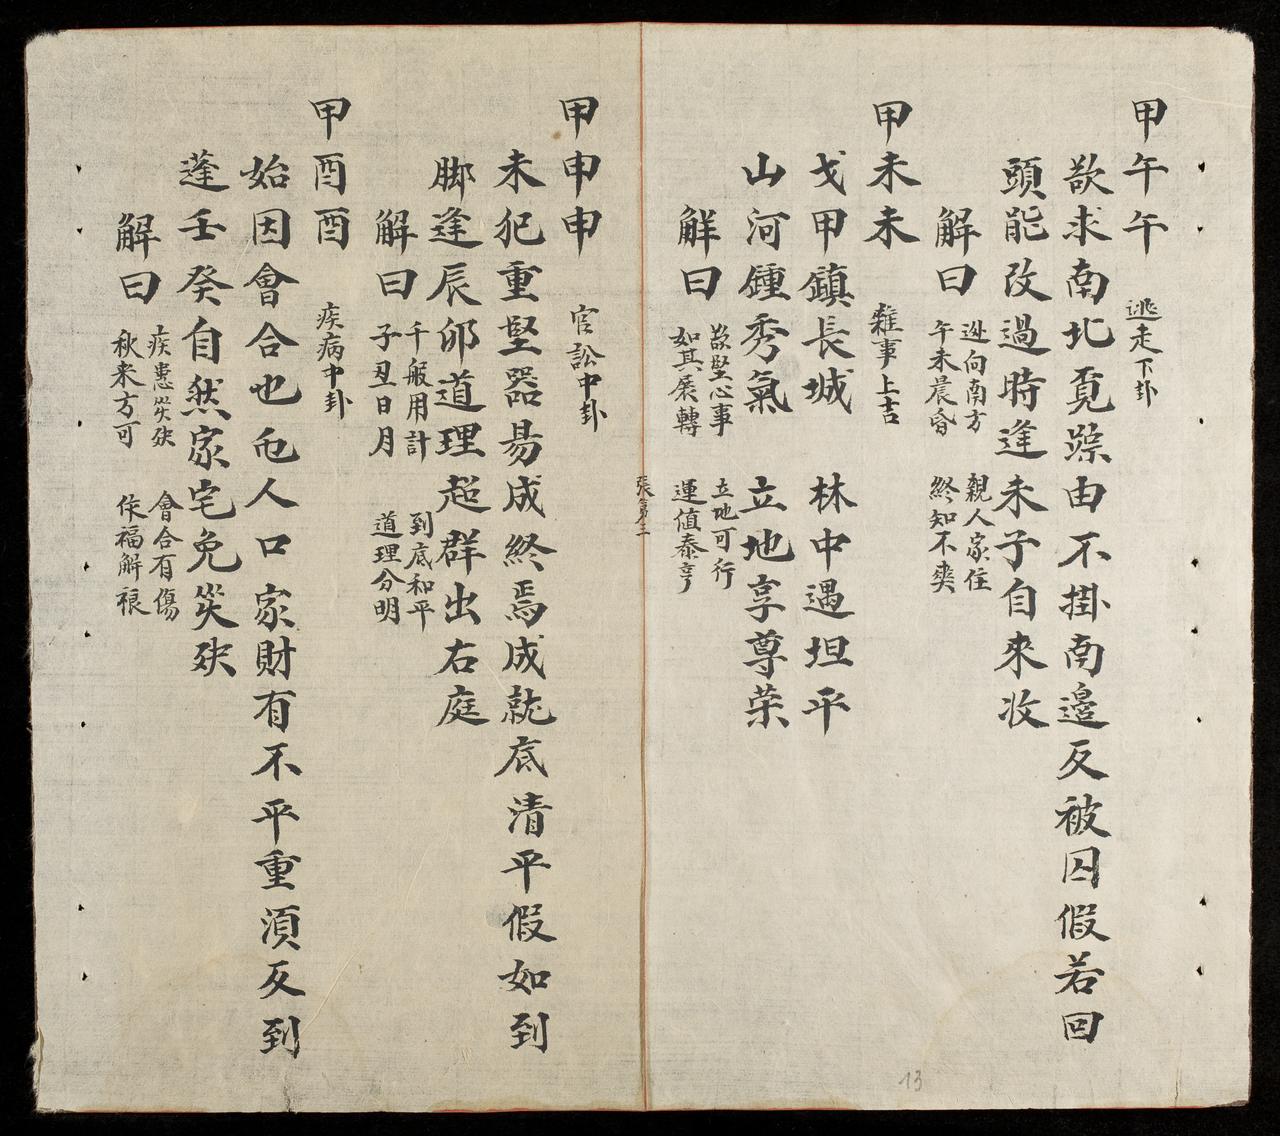 甲午午 逃走下卦
欲求南北覓蹤由不掛南邊反被囚假若回
頭能改過時逢未子自來收
解曰 迯向南方 親人家住
午未晨昏 終知不爽
甲未未 雜事上吉
戈甲鎮長城 林中遇坦平
山河鍾秀氣 立地享尊荣
解曰 欲堅心事 立地可行
如其展轉 運值泰亨
張第三
甲申申 官訟中卦
未犯重堅器易成終焉成就底清平假如到
脚逢辰卯道理超群出右庭
解曰 千般用計 到底和平
子丑日月 道理分明
甲酉酉 疾病中卦
始因會合也 人口家財有不平重須反到
蓬壬癸自然家宅免災殃
解曰 疾患災殃 會合有傷
秋来方可 作福解禳
13